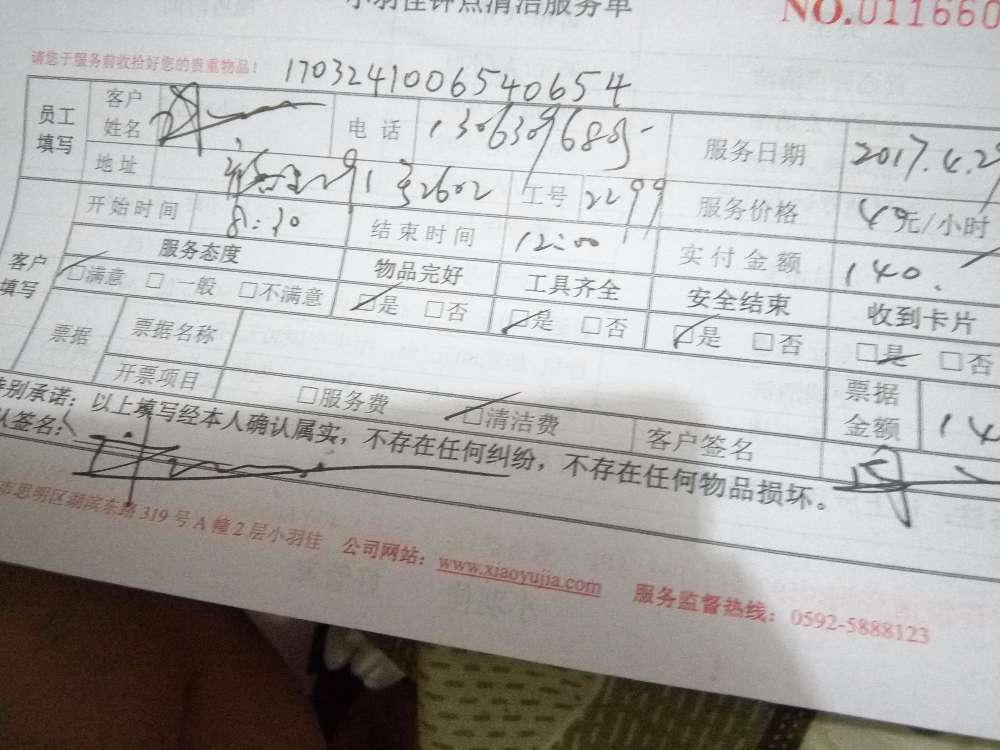 小羽佳钟点清洁服务单 NO.011660
请您于服务前收拾好您的贵重物品! 1703241006540654
员工填写 客户姓名 电话 服务日期 2017.4.29
地址 2602 工号 2299 服务价格 40元/小时
开始时间 8:30 结束时间 12:00 实付金额 140.
客户填写 服务态度 物品完好 工具齐全 安全结束 收到卡片
□满意 □一般 □不满意 □是 □否 □是 □否 □是 □否 □是 □否
票据 票据名称
开票项目 □服务费 □清洁费 客户签名 票据金额 14
特别承诺:以上填写经本人确认属实,不存在任何纠纷,不存在任何物品损坏。
认签名:
市思明区湖滨东路319号A幢2层小羽佳 公司网站:www.xiaoyujia.com 服务监督热线:0592-5888123